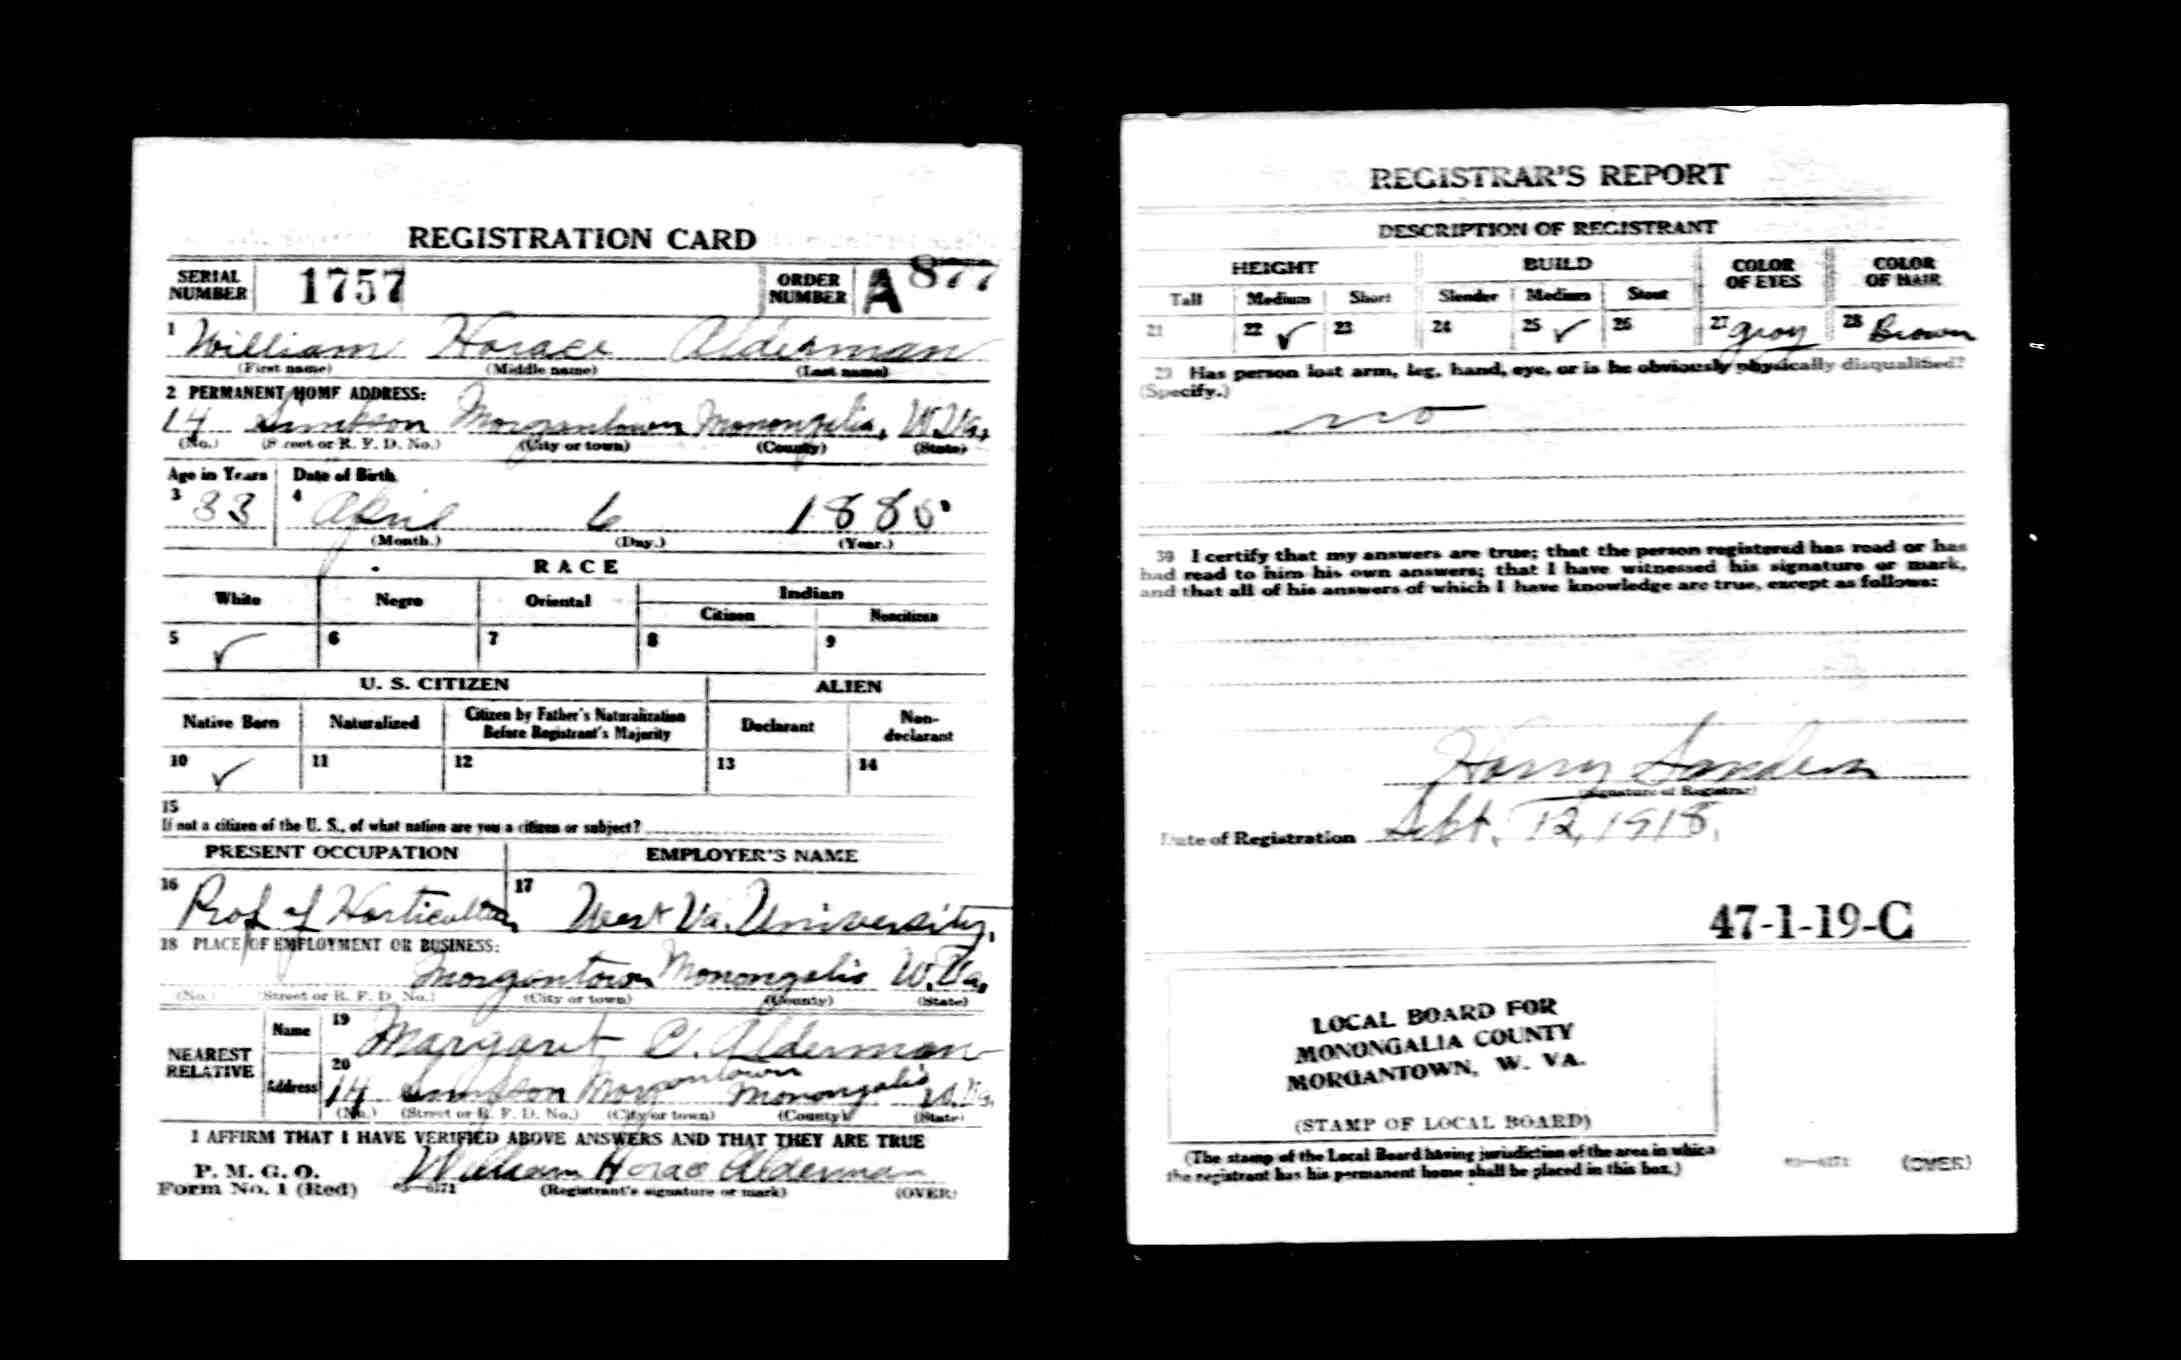 REGISTRATION CARD
SERIAL NUMBER 1757 ORDER NUMBER A 877
1 William Horace Alderman
(First name) (Middle name) (Last name)
2 PERMANENT HOME ADDRESS:
14 Simpson Morgantown Monongalia, W.Va.
(No.) (Street or R. F. D. No.) (City or town) (County) (State)
Age in Years Date of Birth
3 33 4 April 6 1885
(Month.) (Day.) (Year.)
RACE
White Negro Oriental Indian
Citizen Noncitizen
5 ✓ 6 7 8 9
U. S. CITIZEN ALIEN
Native Born Naturalized Citizen by Father's Naturalization Before Registrant's Majority Declarant Non-declarant
10 ✓ 11 12 13 14
15
If not a citizen of the U. S., of what nation are you a citizen or subject?
PRESENT OCCUPATION EMPLOYER'S NAME
16 Prof of Horticulture 17 West Va. University,
18 PLACE OF EMPLOYMENT OR BUSINESS:
Morgantown Monongalia W.Va.
(No.) (Street or R. F. D. No.) (City or town) (County) (State)
NEAREST RELATIVE Name 19 Margaret C. Alderman
Address 20 14 Simpson Morgantown Monongalia W.Va.
(No.) (Street or R. F. D. No.) (City or town) (County) (State)
I AFFIRM THAT I HAVE VERIFIED ABOVE ANSWERS AND THAT THEY ARE TRUE
P. M. G. O.
Form No. 1 (Red) 03—6171 William Horace Alderman
(Registrant's signature or mark) (OVER)
REGISTRAR'S REPORT
DESCRIPTION OF REGISTRANT
HEIGHT BUILD COLOR OF EYES COLOR OF HAIR
Tall Medium Short Slender Medium Stout
21 22 ✓ 23 24 25 ✓ 26 27 gray 28 Brown
29 Has person lost arm, leg, hand, eye, or is he obviously physically disqualified?
(Specify.)
no
30 I certify that my answers are true; that the person registered has read or has
had read to him his own answers; that I have witnessed his signature or mark,
and that all of his answers of which I have knowledge are true, except as follows:
Harry Sanders
(Signature of Registrar)
Date of Registration Sept. 12, 1918.
47-1-19-C
LOCAL BOARD FOR
MONONGALIA COUNTY
MORGANTOWN, W. VA.
(STAMP OF LOCAL BOARD)
(The stamp of the Local Board having jurisdiction of the area in which
the registrant has his permanent home shall be placed in this box.)
03—6171 (OVER)